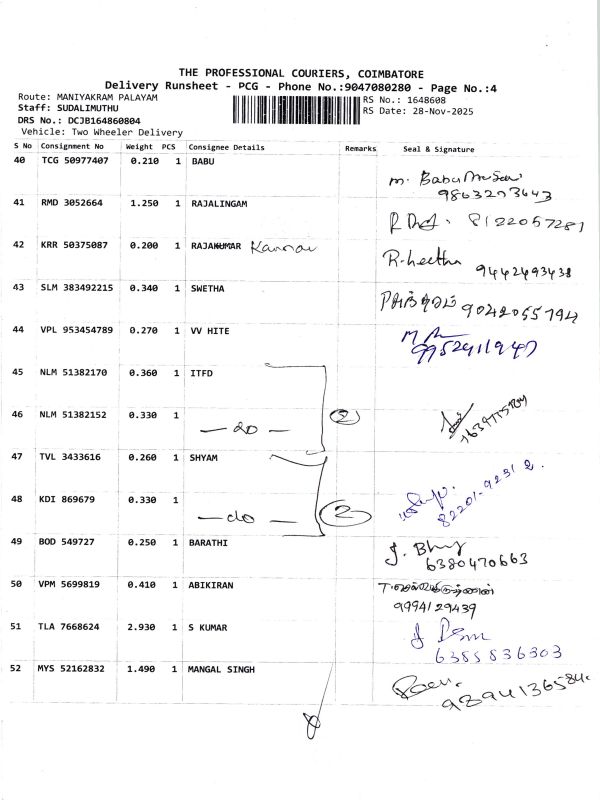 THE PROFESSIONAL COURIERS, COIMBATORE
Delivery Runsheet - PCG - Phone No.:9047080280 - Page No.:4
Route: MANIYAKRAM PALAYAM
Staff: SUDALIMUTHU
DRS No.: DCJB164860804
Vehicle: Two Wheeler Delivery
RS No.: 1648608
RS Date: 28-Nov-2025
S No Consignment No Weight PCS Consignee Details Remarks Seal & Signature
40 TCG 50977407 0.210 1 BABU
9863203643
41 RMD 3052664 1.250 1 RAJALINGAM
8122057281
42 KRR 50375087 0.200 1 RAJAKUMAR Kannan
R. heetha
9442493438
43 SLM 383492215 0.340 1 SWETHA
9042055794
44 VPL 953454789 0.270 1 VV HITE
9952411947
45 NLM 51382170 0.360 1 ITFD
46 NLM 51382152 0.330 1
— do — 2
47 TVL 3433616 0.260 1 SHYAM
48 KDI 869679 0.330 1
— do — 2
82201-92312.
49 BOD 549727 0.250 1 BARATHI
6380470663
50 VPM 5699819 0.410 1 ABIKIRAN
9994129439
51 TLA 7668624 2.930 1 S KUMAR
6385836303
52 MYS 52162832 1.490 1 MANGAL SINGH
9894136584